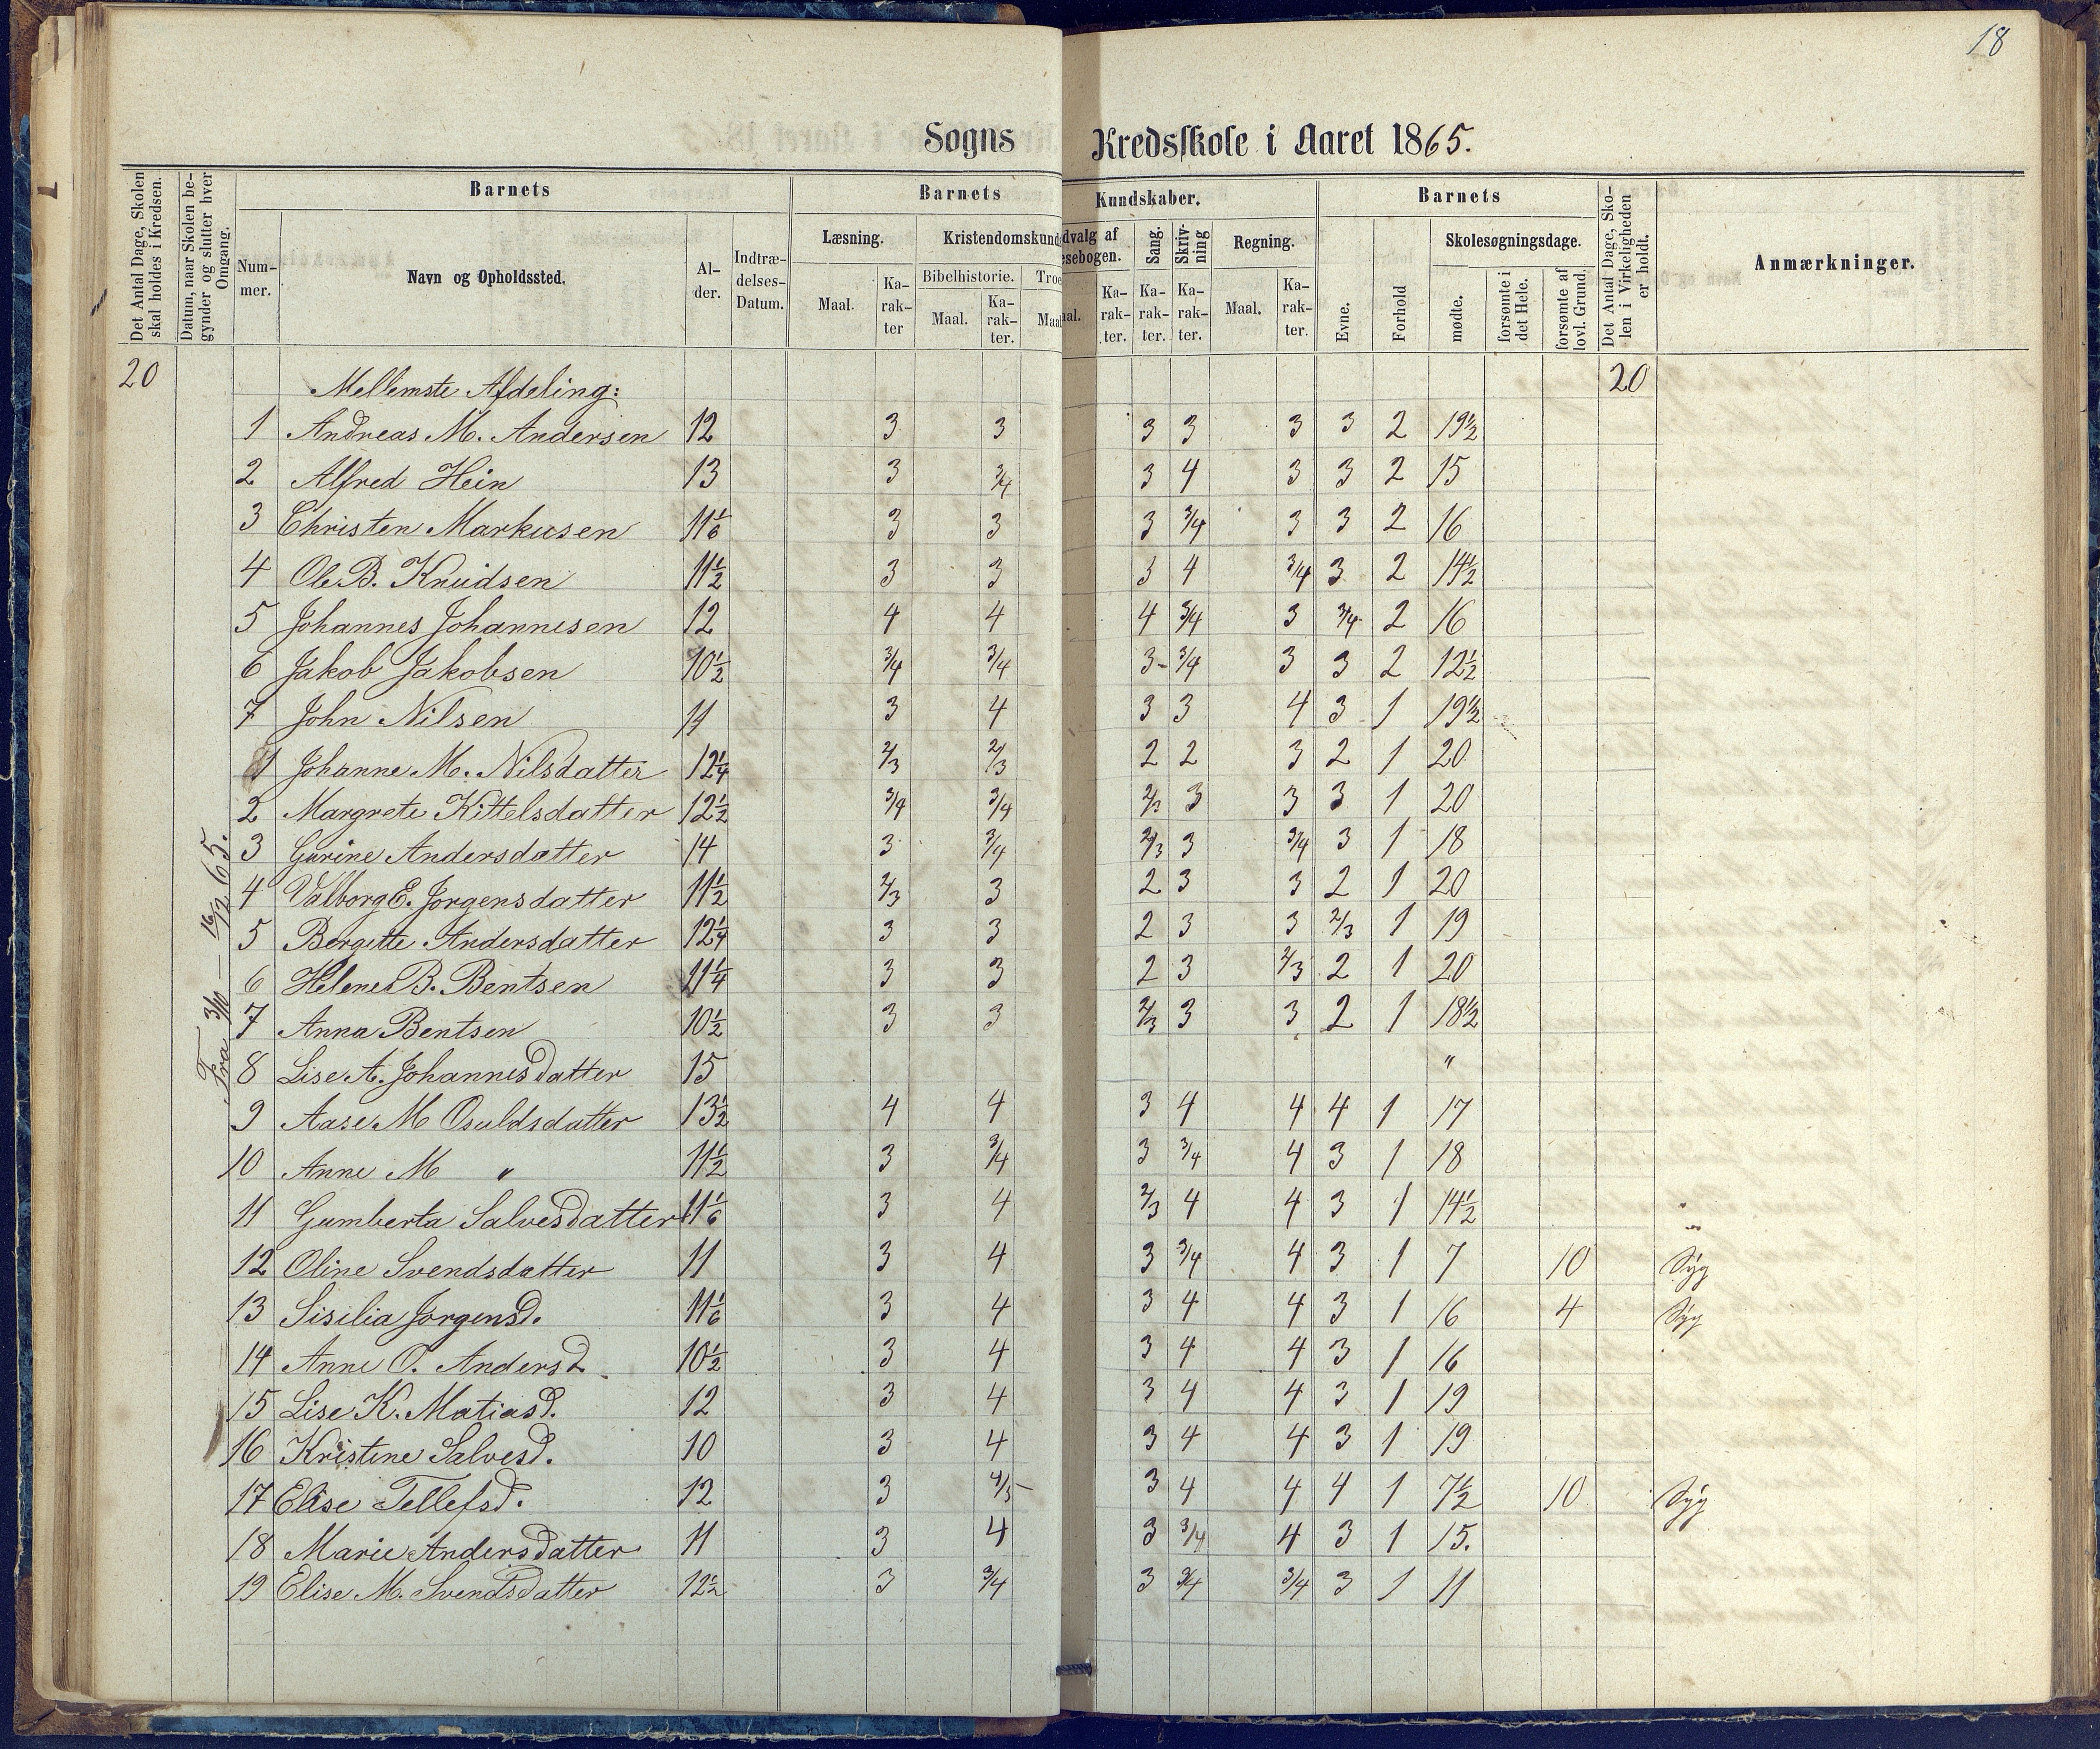 18
Sogns Kredsskole i Aaret 1865.
Det Antal Dage, Skolen skal holdes i Kredsen.
Datum, naar Skolen begynder og slutter hver Omgang.
Barnets
Num-
mer.
Navn og Opholdssted.
Al-
der.
Indtræ-
delses-
Datum.
Barnets Kundskaber.
Læsning.
Maal.
Ka-
rak-
ter
Kristendomskund
Bibelhistorie.
Maal.
Ka-
rak-
ter.
Troe
Maal
dvalg af
esebogen.
al.
Ka-
rak-
ter.
Sang.
Ka-
rak-
ter.
Skriv-
ning
Ka-
rak-
ter.
Regning.
Maal.
Ka-
rak-
ter.
Barnets
Evne.
Forhold
Skolesøgningsdage.
mødte.
forsømte i det Hele.
forsømte af lovl. Grund.
Det Antal Dage, Sko-
len i Virkeligheden
er holdt.
Anmærkninger.
20 Mellemste Afdeling: 20
Fra 3/10 — 16/12 65.
1 Andreas M. Andersen 12 3 3 3 3 3 3 2 19½
2 Alfred Hein 13 3 3/4 3 4 3 3 2 15
3 Christen Markusen 11 1/6 3 3 3 3/4 3 3 2 16
4 Ole B. Knudsen 11½ 3 3 3 4 3/4 3 2 14½
5 Johannes Johannesen 12 4 4 4 3/4 3 3/4 2 16
6 Jakob Jakobsen 10½ 3/4 3/4 3- 3/4 3 3 2 12½
7 John Nilsen 11 3 4 3 3 4 3 1 19½
1 Johanne M. Nilsdatter 12¼ 2/3 2/3 2 2 3 2 1 20
2 Margrete Kittelsdatter 12½ 3/4 3/4 2/3 3 3 3 1 20
3 Gurine Andersdatter 14 3 3/4 2/3 3 3/4 3 1 18
4 Valborg E. Jorgensdatter 11½ 2/3 3 2 3 3 2 1 20
5 Bergitte Andersdatter 12¼ 3 3 2 3 3 2/3 1 19
6 Helene B. Bentsen 11¼ 3 3 2 3 2/3 2 1 20
7 Anna Bentsen 10½ 3 3 2/3 3 3 2 1 18½
8 Lise A. Johannesdatter 15 "
9 Aase M Osuldsdatter 13½ 4 4 3 4 4 4 1 17
10 Anne M " 11½ 3 3/4 3 3/4 4 3 1 18
11 Gumberta Salvesdatter 11 1/6 3 4 2/3 4 4 3 1 14½
12 Oline Svendsdatter 11 3 4 3 3/4 4 3 1 7 10 Syg
13 Sisilia Jorgensd. 11 1/6 3 4 3 4 4 3 1 16 4 Syg
14 Anne O. Andersd. 10½ 3 4 3 4 4 3 1 16
15 Lise K. Matiasd. 12 3 4 3 4 4 3 1 19
16 Kristine Salvesd. 10 3 4 3 4 4 3 1 19
17 Elise Tellefsd. 12 3 4/5 3 4 4 4 1 7½ 10 Syg
18 Marie Andersdatter 11 3 4 3 3/4 4 3 1 15.
19 Elise M. Svendsdatter 12½ 3 3/4 3 3/4 3/4 3 1 11